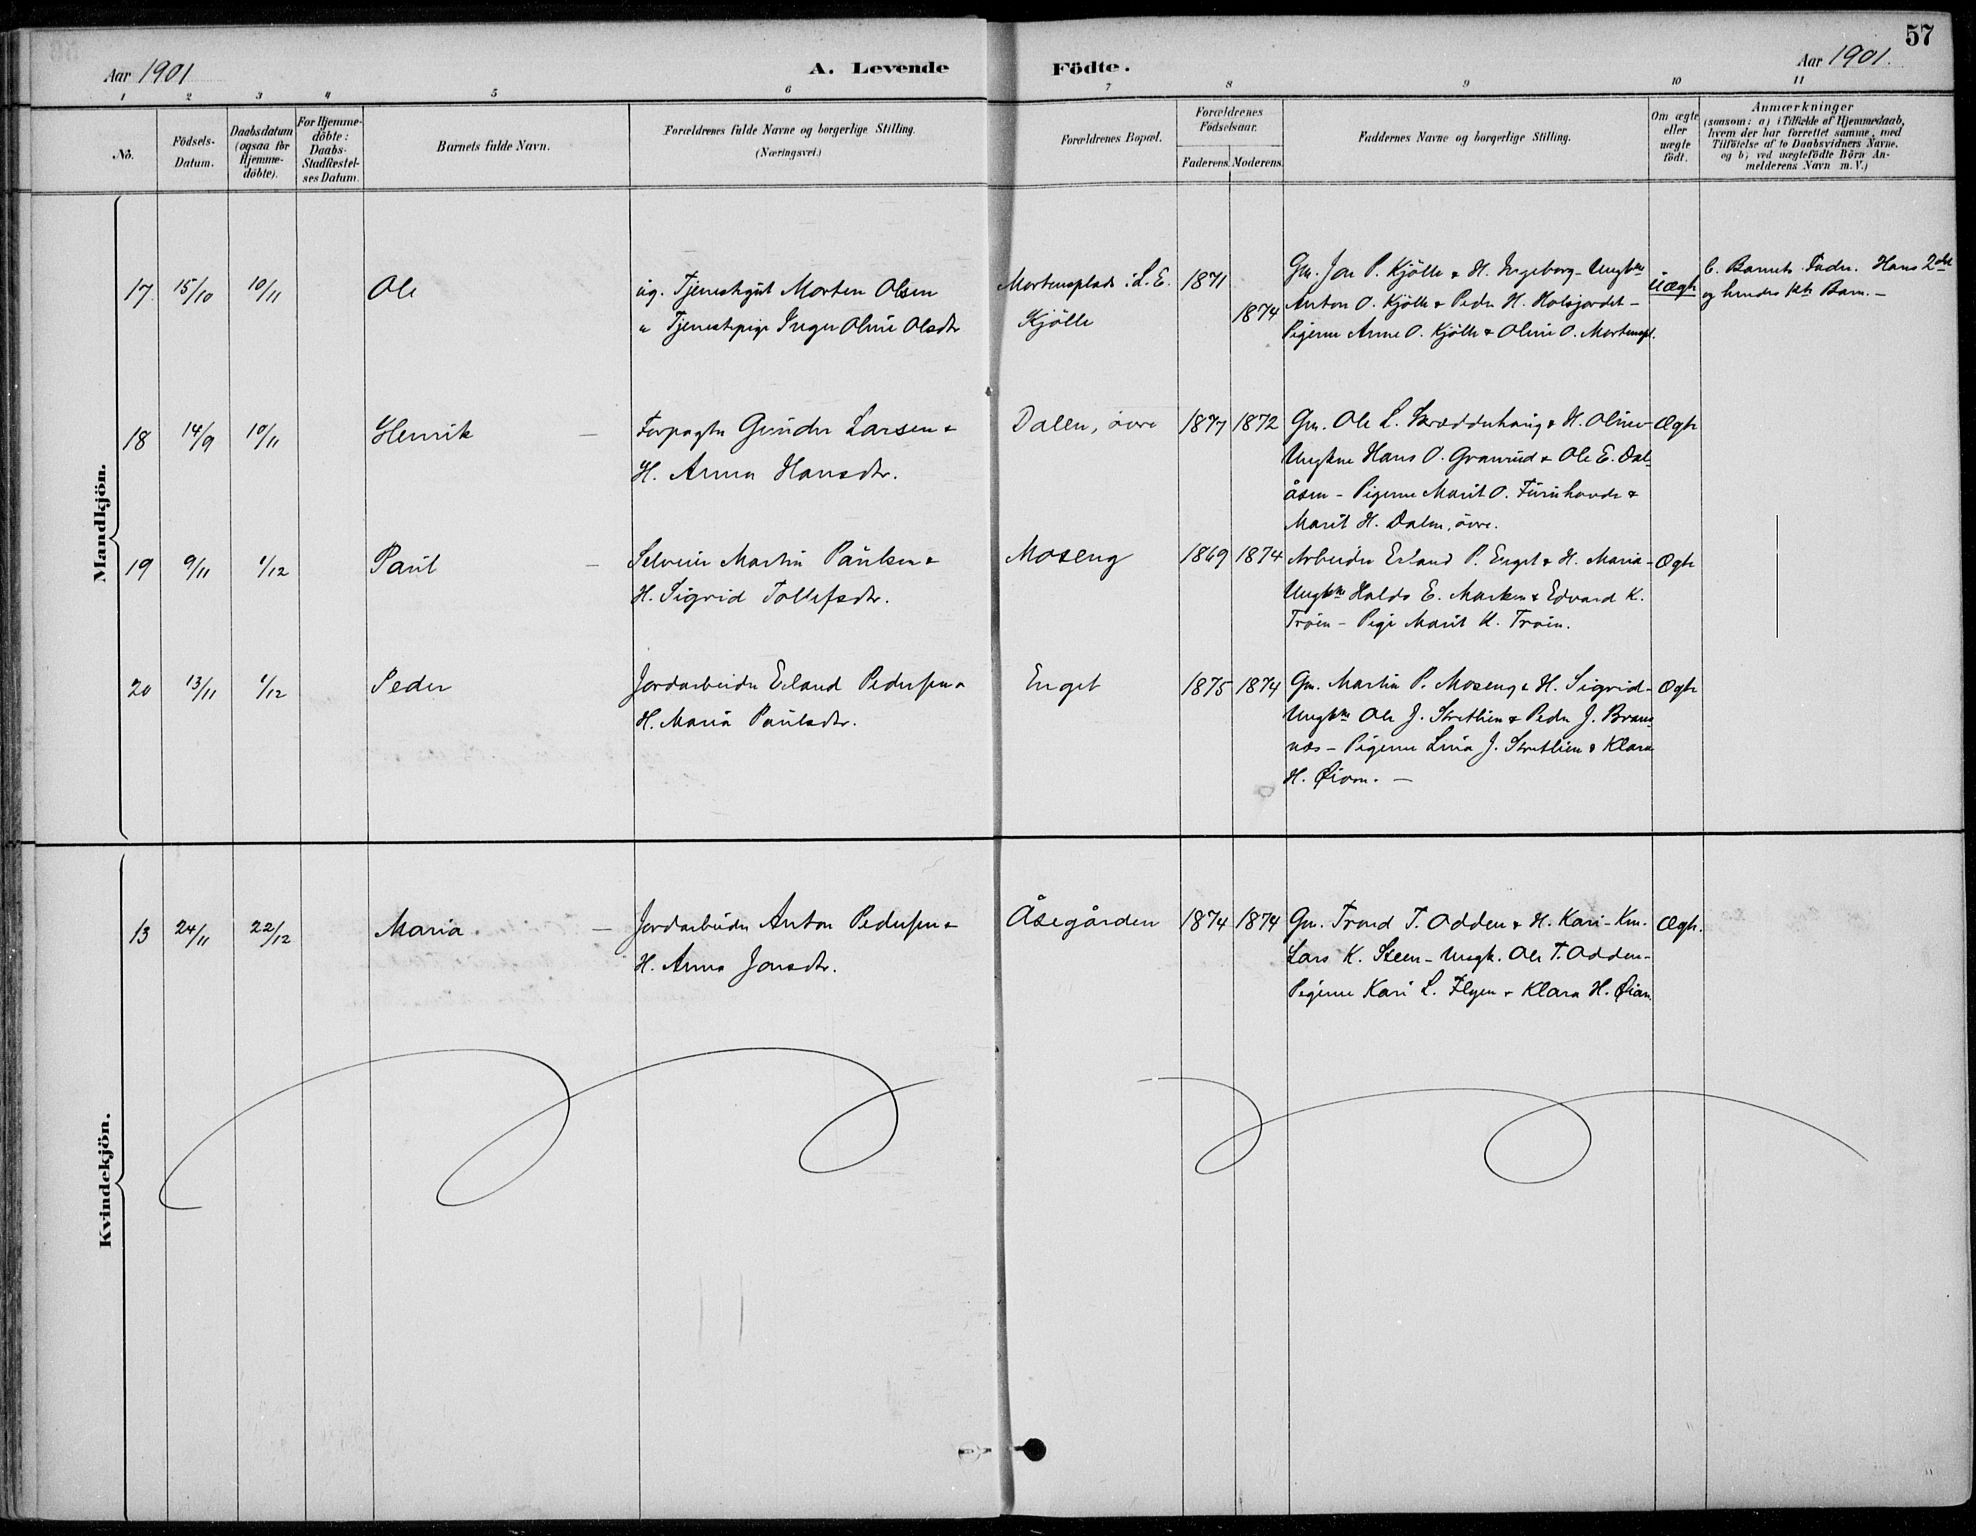 57
Aar 1901
A. Levende Födte.
Aar 1901.
1 2 3 4 5 6 7 8 9 10 11
No.
Födsels-
Datum.
Daabsdatum
(ogsaa for
Hjemme-
döbte).
For Hjemme-
döbte:
Daabs-
Stadfæstel-
ses Datum.
Barnets fulde Navn.
Forældrenes fulde Navne og borgerlige Stilling.
(Næringsvei.)
Forældrenes Bopæl.
Forældrenes
Födselsaar.
Faderens. Moderens.
Faddernes Navne og borgerlige Stilling.
Om ægte
eller
uægte
födt.
Anmærkninger
(saasom: a) i Tilfælde af Hjemmedaab,
hvem der har forrettet samme, med
Tilföielse af to Daabsvidners Navne.
og b) ved uægtefödte Börn An-
melderens Navn m.V.)
Mandkjön.
17 15/10 10/11 Ole
ug. Tjenestegut Morten Olsen
" Tjenestepige Inger Oline Olsdtr
Mortensplads i L. E.
Kjölle
1871
1874
Gm. Jon P. Kjölle & H. Ingeborg - Ungkne
Anton O. Kjölle & Peder H. Holsjordet -
Pigerne Anne O. Kjölle & Oline O. Mortenspl.
Uægte
b. Barnets Fader. Hans 2det
og hendes 1ste Barn. -
18 14/9 10/11 Henrik -
Forpagter Gunder Larsen &
H. Anna Hansdtr.
Dalen, övre
1877 1872
Gm. Ole L. Skrædderhaug & H. Oline -
Ungkne Hans O. Granrud & Ole E. Dal-
åsen - Pigerne Marit O. Furuhovde &
Marit H. Dalen, övre.
Ægte
19 9/11 1/12 Paul -
Selveier Martin Paulsen &
H. Sigrid Tollefsdtr.
Moseng
1869 1874
Arbeider Erland P. Enget & H. Maria -
Ungkne Haldo E. Marken & Edvard K.
Troen - Pige Marit K. Troen.
Ægte
20 13/11 1/12 Peder
Jordarbeider Erland Pedersen &
H. Maria Paulsdtr.
Enget
1875 1874
Gm. Martin P. Moseng & H. Sigrid -
Ungkne Ole J. Stretlien & Peder J. Bræn-
næs - Pigerne Lina J. Stretlien & Klara
H. Øien. -
Ægte
Kvindekjön.
13 24/11 22/12 Maria -
Jordarbeider Anton Pedersen &
H. Anna Jonsdtr.
Åsegården
1874 1874
Gm. Trond T. Odden & H. Kari - Km.
Lars K. Steen - Ungk. Ole T. Odden -
Pigerne Kari L. Flyen & Klara H. Øien.
Ægte.